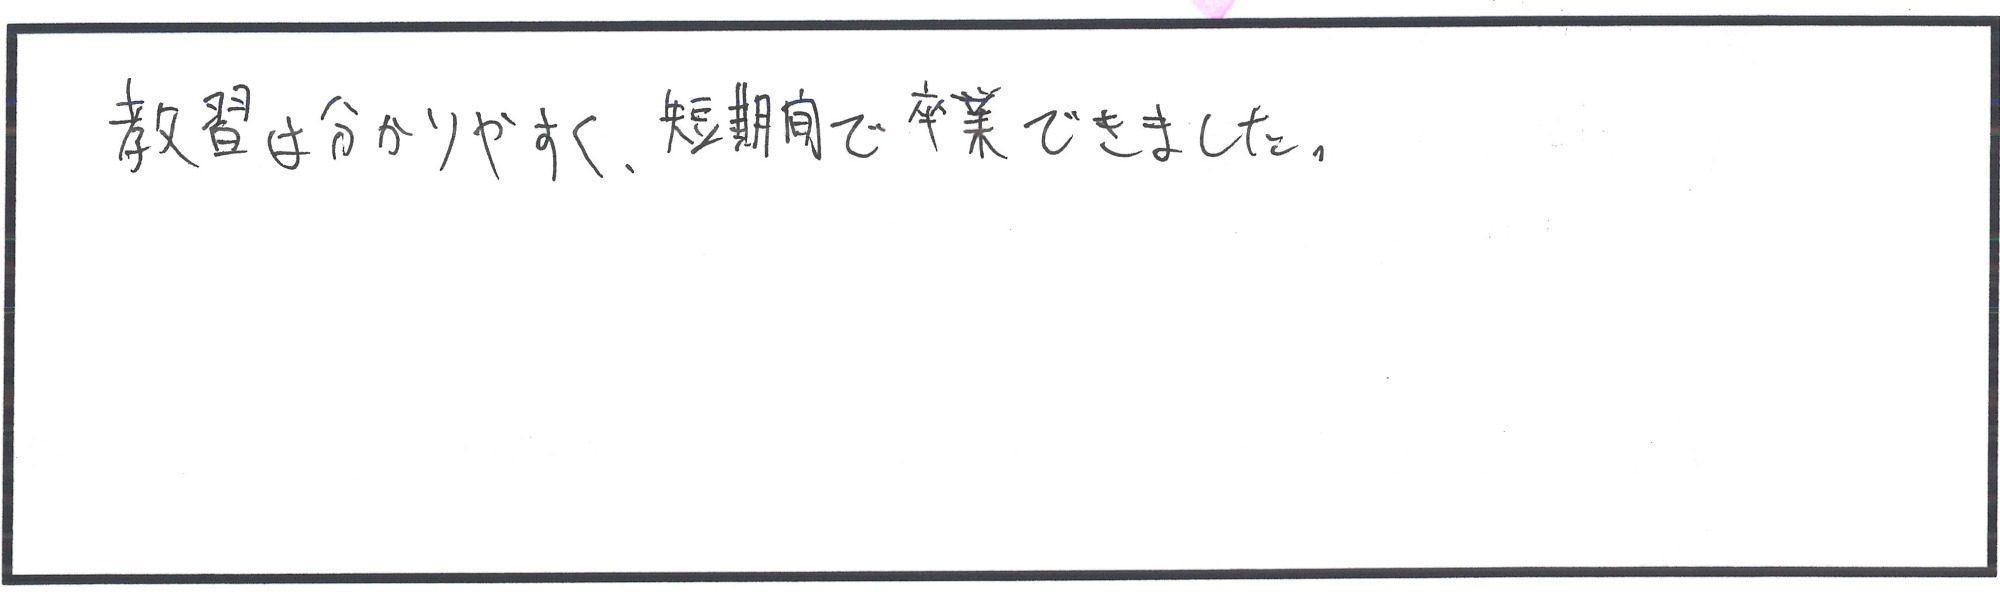 教習は分かりやすく、短期間で卒業できました。